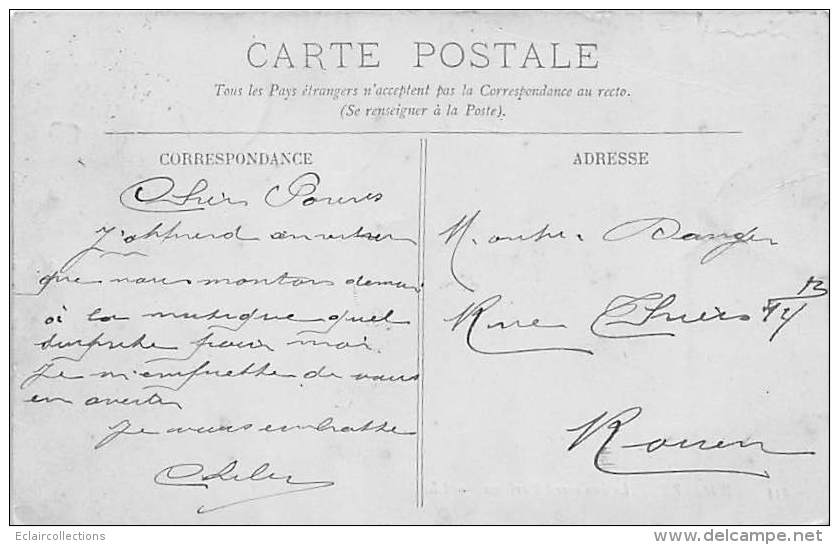 CARTE POSTALE
Tous les Pays étrangers n'acceptent pas la Correspondance au recto.
(Se renseigner à la Poste).
CORRESPONDANCE
Chers
J'apprend
que nous montons demain
à la musique quel
surprise pour moi.
Je m'empresse de vous
en avertir
Je vous embrasse
ADRESSE
Danger
Rue Thiers
Rouen
Eclaircollections
www.delcampe.net